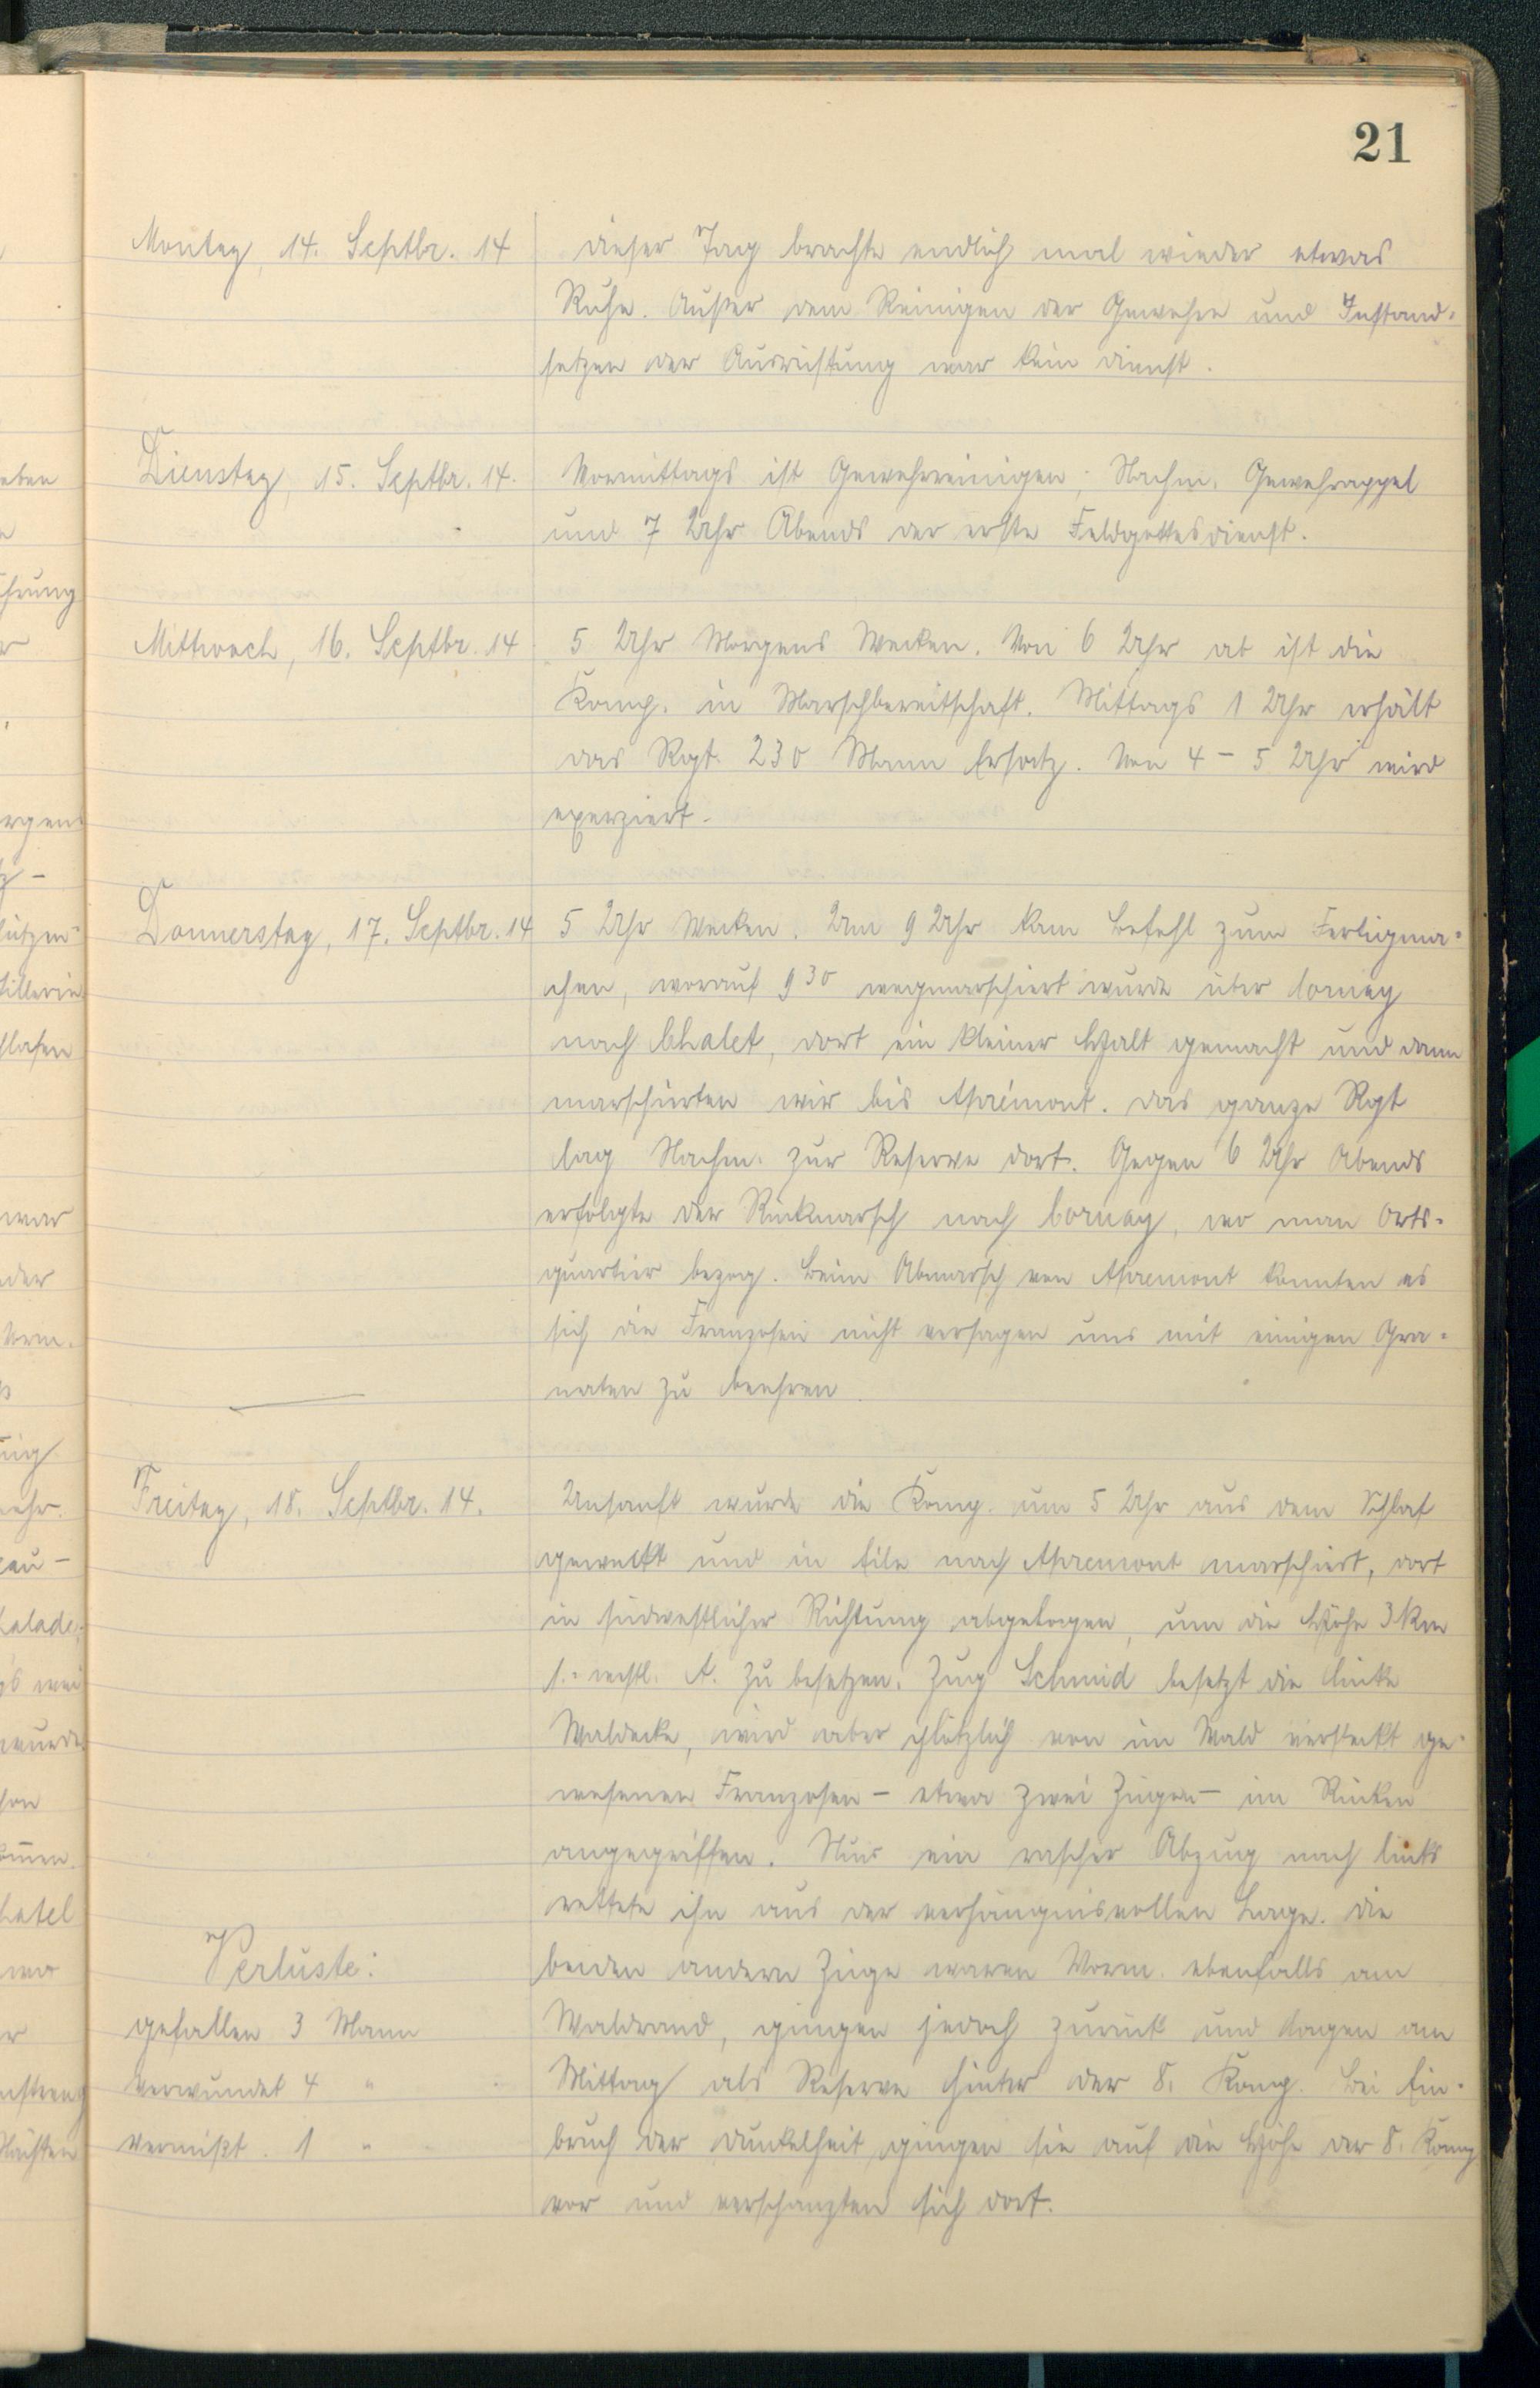 21
Montag, 14. Septbr. 14
Dieser Tag brachte endlich mal wieder etwas
Ruhe. Außer dem Reinigen der Gewehre und Instand-
setzen der Ausrüstung war kein Dienst.
Dienstag, 15. Septbr. 14.
Vormittags ist Gewehrreinigen; Nachm. Gewehrappel
und 7 Uhr Abends der erste Feldgottesdienst.
Mittwoch, 16. Septbr. 14
5 Uhr Morgens Wecken. Von 6 Uhr ab ist die
Komp. in Marschbereitschaft. Mittags 1 Uhr erhält
das Rgt. 230 Mann Ersatz. Von 4 - 5 Uhr wird
exerziert.
Donnerstag, 17. Septbr. 14
5 Uhr Wecken. Um 9 Uhr kam Befehl zum Fertigma-
chen, worauf 9 30 wegmarschiert wurde über Cornay
nach Chalet, dort ein kleiner Halt gemacht und dann
marschierten wir bis Aprémont. Das ganze Rgt
lag Nachm. zur Reserve dort. Gegen 6 Uhr Abends
erfolgte der Rückmarsch nach Cornay, wo man Orts-
quartier bezog. Beim Abmarsch von Apremont konnten es
sich die Franzosen nicht versagen uns mit einigen Gra-
naten zu beehren.
Freitag, 18. Septbr. 14.
Unsanft wurde die Komp. um 5 Uhr aus dem Schlaf
geweckt und in Eile nach Apremont marschiert, dort
in südwestlicher Richtung abgebogen, um die Höhe 3 km
s.-westl. A. zu besetzen. Zug Schmid besetzt die linke
Waldecke, wird aber plötzlich von im Wald versteckt ge-
wesenen Franzosen - etwa zwei Zügen - im Rücken
angegriffen. Nur ein rascher Abzug nach links
rettete ihn aus der verhängnisvollen Lage. Die
beiden andern Züge waren Vorm. ebenfalls am
Waldrand, gingen jedoch zurück und lagen am
Mittag als Reserve hinter der 8. Komp. Bei Ein-
bruch der Dunkelheit gingen sie auf die Höhe der 8. Komp
vor und verschanzten sich dort.
Verluste:
gefallen 3 Mann
verwundet 4 "
vermißt. 1 "